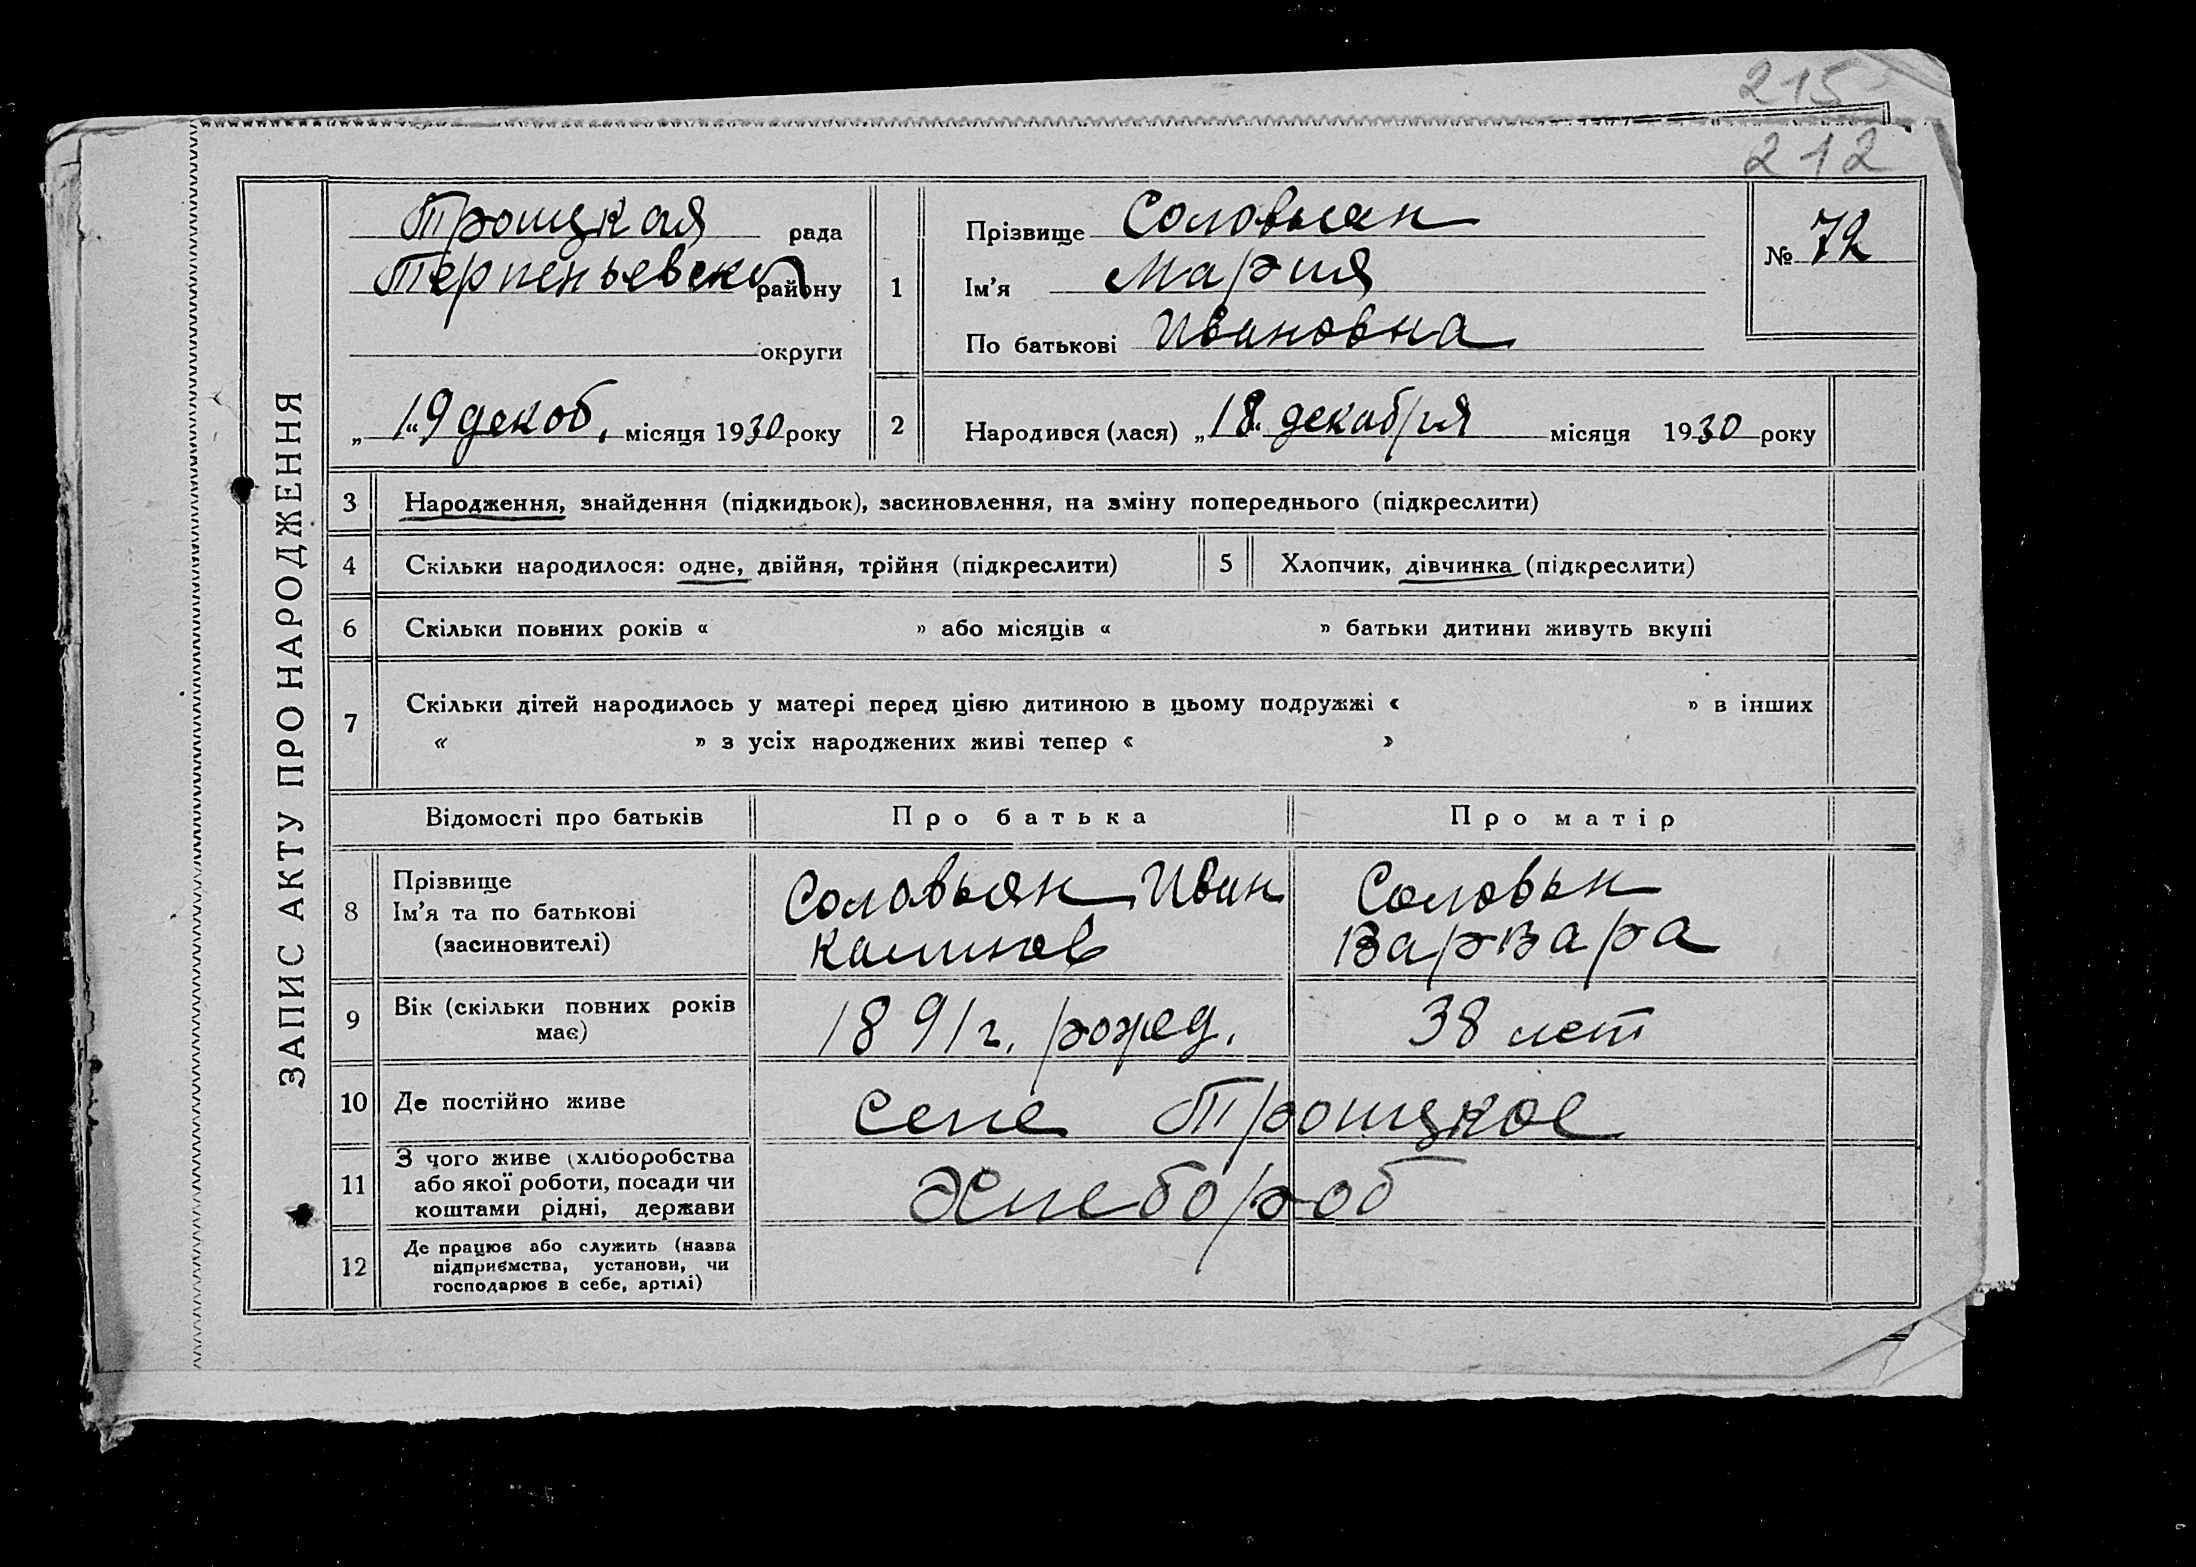 215
212
ЗАПИС АКТУ ПРО НАРОДЖЕННЯ
Троицкая рада
Терпеньевск району
округи
„19" декаб. місяця 1930 року
1
Прізвище Соловьян
Ім'я Мария
По батькові Ивановна
№ 72
2 Народився (лася) „18" декабря місяця 1930 року
3 Народження, знайдення (підкидьок), засиновлення, на зміну попереднього (підкреслити)
4 Скільки народилося: одне, двійня, трійня (підкреслити) 5 Хлопчик, дівчинка (підкреслити)
6 Скільки повних років « » або місяців « » батьки дитини живуть вкупі
7 Скільки дітей народилось у матері перед цією дитиною в цьому подружжі « » в інших
« » з усіх народжених живі тепер « »
Відомості про батьків Про батька Про матір
8 Прізвище
Ім'я та по батькові
(засиновителі)
Соловьян Иван
Калинов
Соловьн
Варвара
9 Вік (скільки повних років
має)
1891 г. рожд. 38 лет
10 Де постійно живе селе Троицкое
11 З чого живе (хліборобства
або якої роботи, посади чи
коштами рідні, держави
Хлебороб
12 Де працює або служить (назва
підприємства, установи, чи
господарює в себе, артілі)